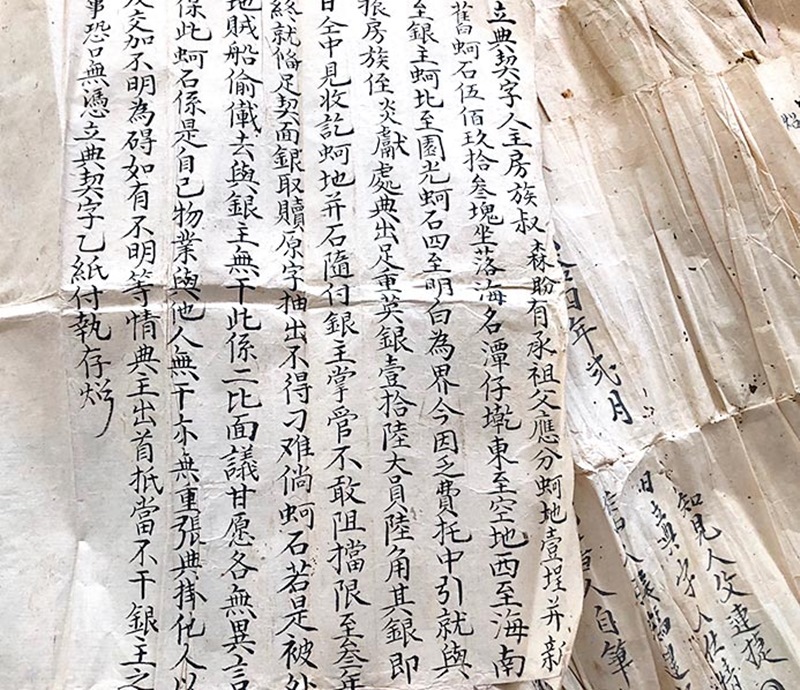 立典契字人主房族叔森盼有承祖父應分蚵地壹埕并新
舊蚵石伍佰玖拾叁塊坐落海名潭仔墘東至空地西至海南
至銀主蚵比至園光蚵石四至明白為界今因乏費托中引就與
振房族侄炎獻處典出足重英銀壹拾陸大員陸角其銀即
日仝中見收訖蚵地并石隨付銀主掌管不敢阻擋限至叁年
終就偹足契面銀取贖原字抽出不得刁难倘蚵石若是被外
地賊船偷儎去與銀主無干此係二比面議甘愿各無異言
保此蚵石係是自己物業與他人無干亦無重張典掛他人以
及交加不明為碍如有不明等情典主出首抵當不干銀主之
事恐口無憑立典契字乙紙付執存炤
四年弍月
知見人
日立典字人
人自筆